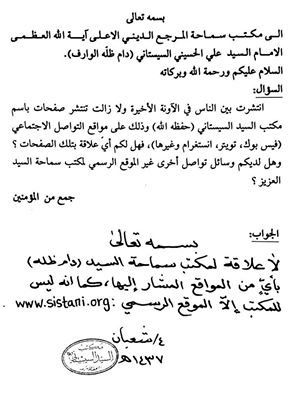 بسمه تعالى
الى مكتب سماحة المرجع الديني الاعلى آية الله العظمى
الامام السيد علي الحسيني السيستاني (دام ظله الوارف).
السلام عليكم ورحمة الله وبركاته
السؤال:
انتشرت بين الناس في الآونة الأخيرة ولا زالت تنتشر صفحات باسم
مكتب السيد السيستاني (حفظه الله) وذلك على مواقع التواصل الاجتماعي
(فيس بوك، تويتر، انستغرام وغيرها)، فهل لكم أيّ علاقة بتلك الصفحات ؟
وهل لديكم وسائل تواصل أخرى غير الموقع الرسمي لمكتب سماحة السيد
العزيز ؟
جمع من المؤمنين
الجواب:
بسمه تعالى
لا علاقة لمكتب سماحة السيد (دام ظله)
بأيٍّ من المواقع المشار إليها، كما انه ليس
للمكتب إلّا الموقع الرسمي: www.sistani.org
٤/ شعبان
١٤٣٧هـ
مكتب
السيد السيستاني